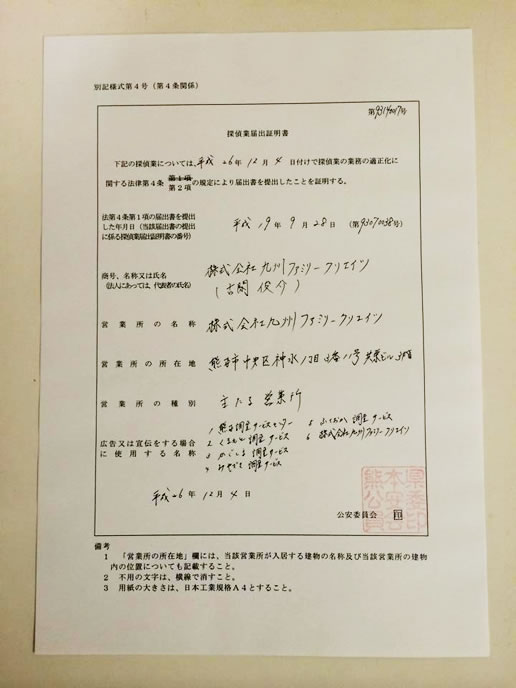 別記様式第4号（第4条関係）
第93140017号
探偵業届出証明書
下記の探偵業については、平成26年12月4日付けで探偵業の業務の適正化に
関する法律第4条 第1項 第2項 の規定により届出書を提出したことを証明する。
法第4条第1項の届出書を提出
した年月日（当該届出書の提出
に係る探偵業届出証明書の番号）
平成19年9月28日（第93070038号）
商号、名称又は氏名
（法人にあっては、代表者の氏名）
株式会社九州ファミリークリエイツ
営業所の名称 株式会社九州ファミリークリエイツ
営業所の所在地 熊本市中央区神水1丁目
営業所の種別 主たる営業所
広告又は宣伝をする場合
に使用する名称
1 熊本調査サービスセンター 5 ふくおか調査サービス
2 くまもと調査サービス 6 株式会社九州ファミリークリエイツ
3 かごしま調査サービス
4 みやざき調査サービス
平成26年12月4日
公安委員会 印
熊本県公安委員会印
備考
1 「営業所の所在地」欄には、当該営業所が入居する建物の名称及び当該営業所の建物
内の位置についても記載すること。
2 不用の文字は、横線で消すこと。
3 用紙の大きさは、日本工業規格A4とすること。